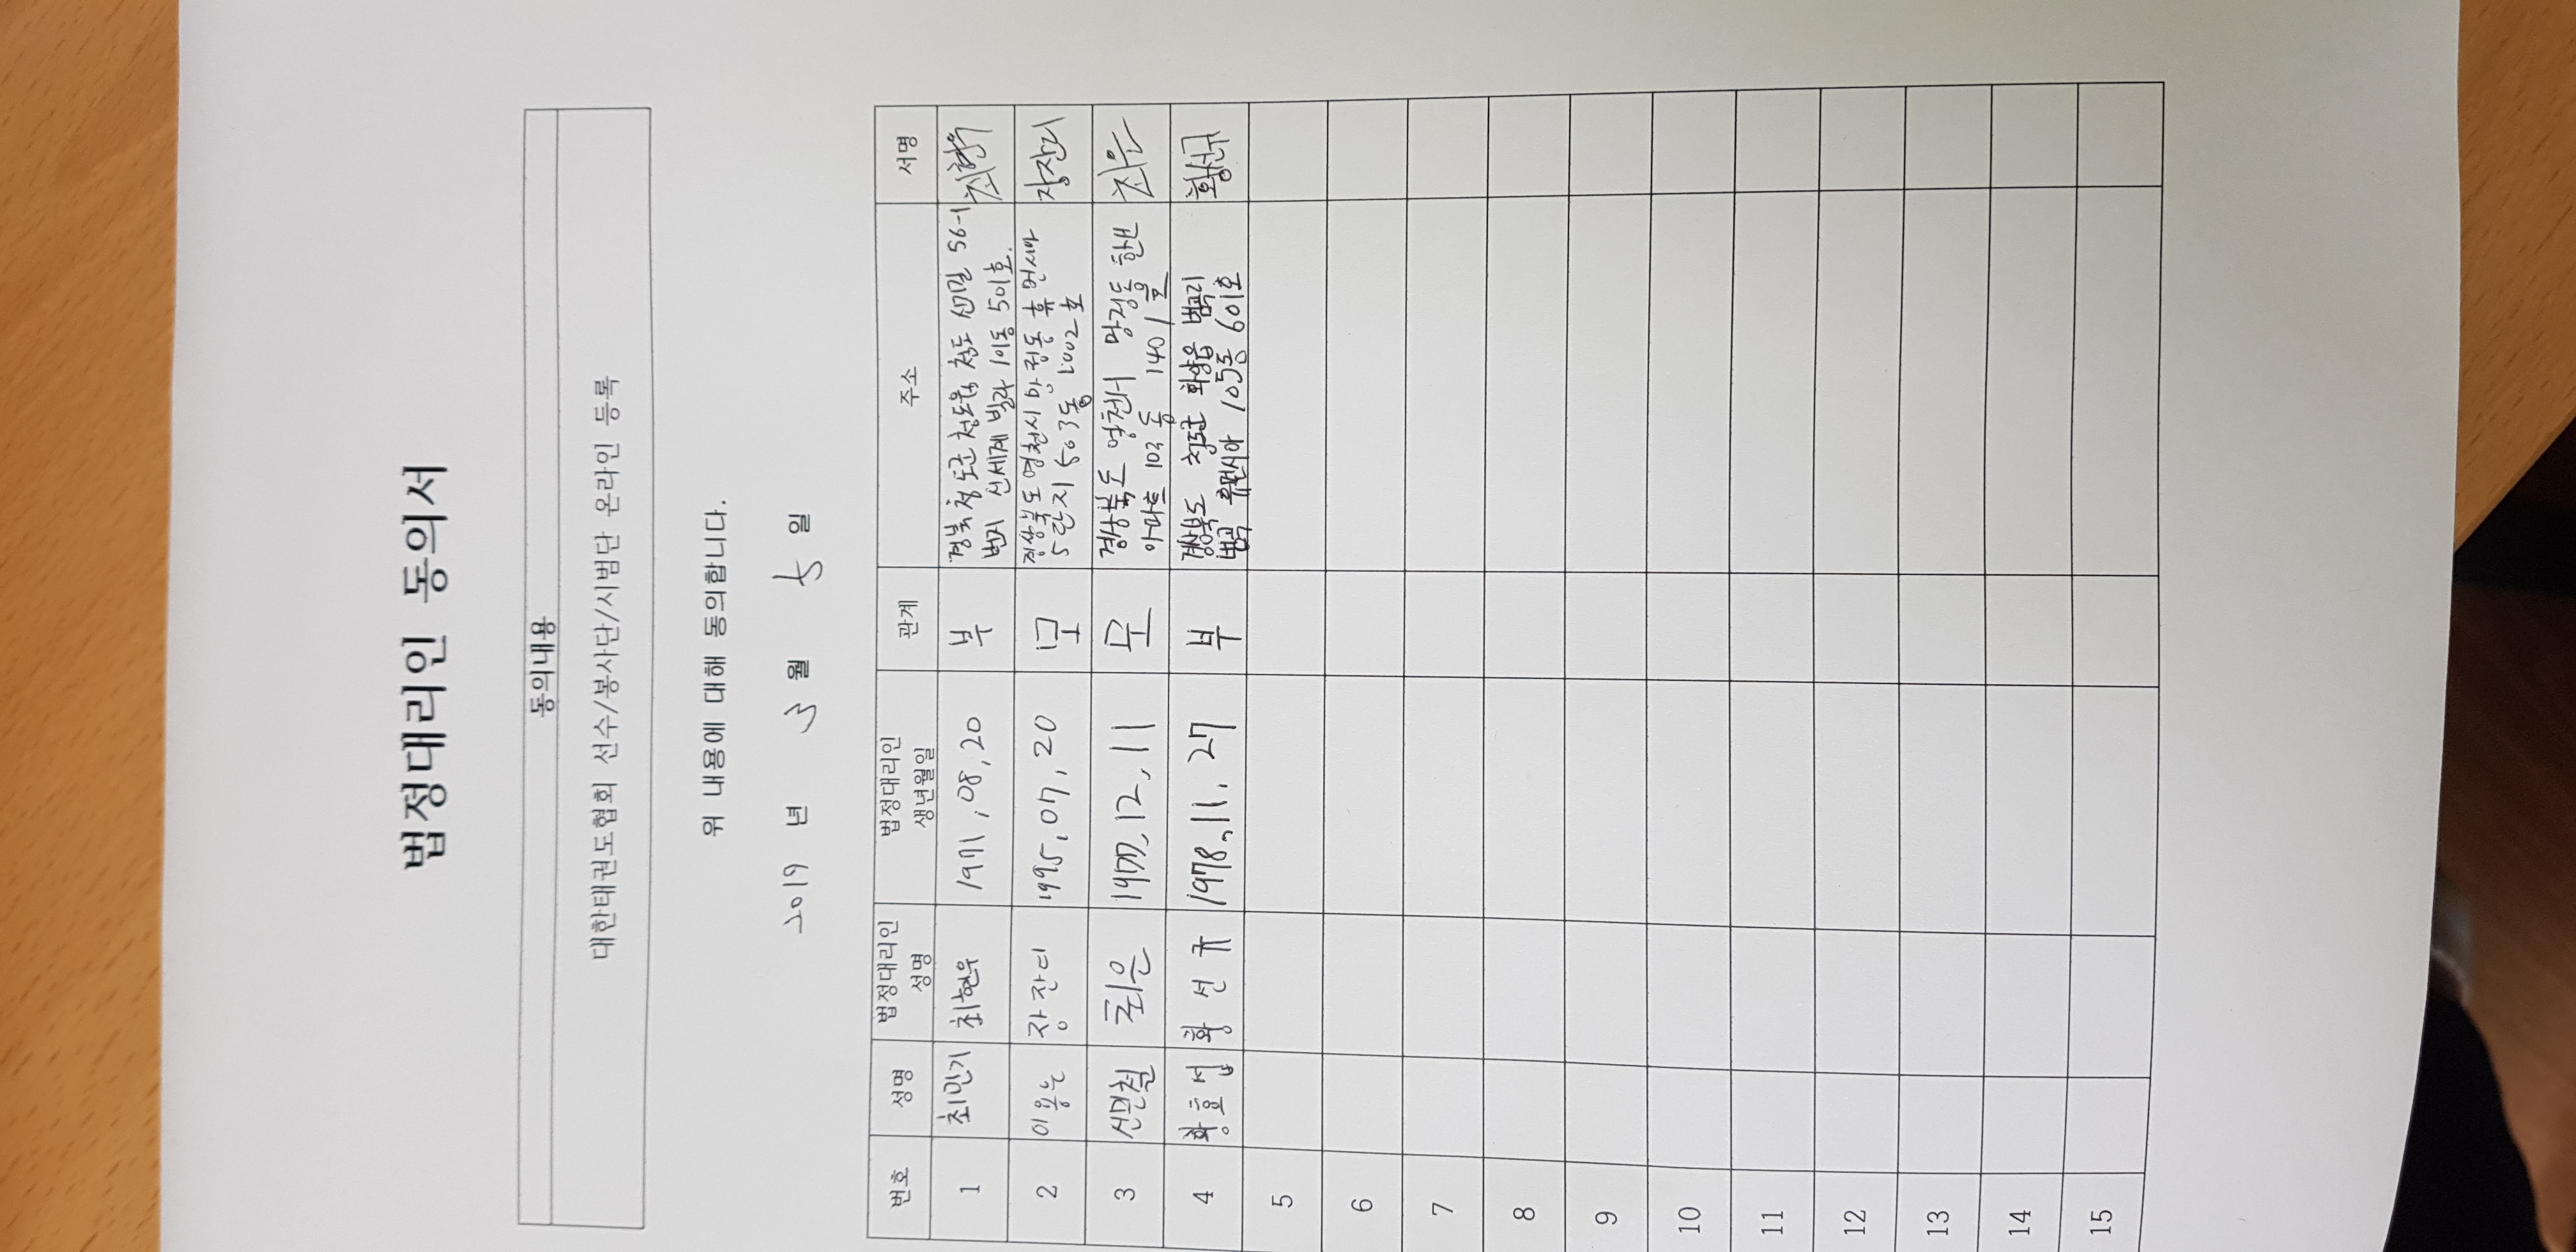 법정대리인 동의서
동의내용
대한태권도협회 선수/봉사단/시범단 온라인 등록
위 내용에 대해 동의합니다.
2019 년 3 월 5 일
번호 성명 법정대리인 성명 법정대리인 생년월일 관계 주소 서명
1 최민기 최현우 1971,08,20 부 경북 청도군 청도읍 청도 56-1
번지 신세계 빌라 101동 501호. 최현우
2 이용노 장잔디 1995,07,20 모 경상북도 영천시 망정동 휴먼시아
5단지 503동 1002호 장잔디
3 신민철 최은 1977,12,11 모 경상북도 영천시 망정동 한신
아파트 103동 1401호 최은
4 황효섭 황선규 1978.11.27 부 경상북도 청도군 화양읍 범곡리
범곡 휴먼시아 105동 601호 황선규
5
6
7
8
9
10
11
12
13
14
15